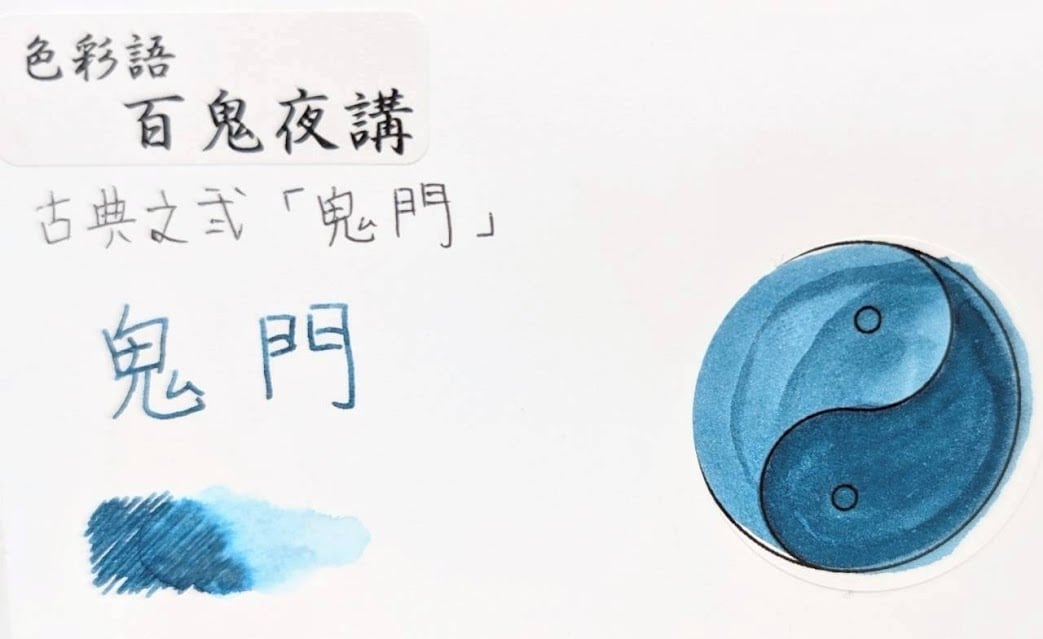 色彩語
百鬼夜講
古典文弐「鬼門」
鬼門